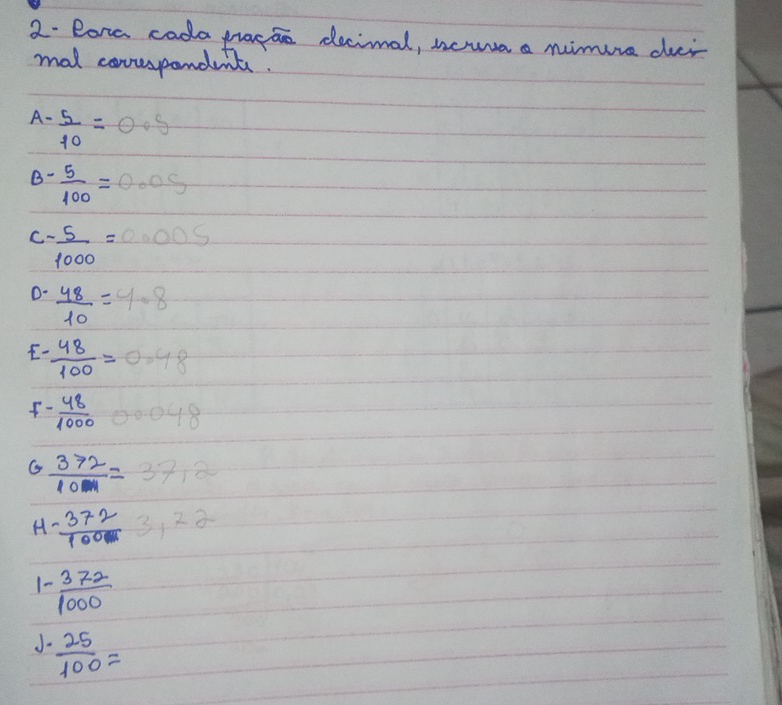 2- Para cada fração decimal, escreva o número deci
mal correspondente.
A- 5/10 = 0.5
B- 5/100 = 0.05
C- 5/1000 = 0.005
D- 48/10 = 4.8
E- 48/100 = 0.48
F- 48/1000 0.048
G 372/10 = 37,2
H- 372/100 3,72
I- 372/1000
J- 25/100 =